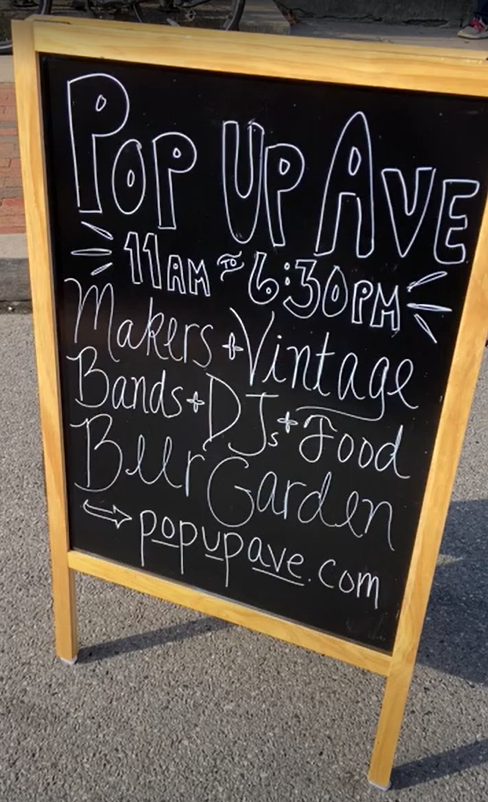 POP UP AVE
11AM TO 6:30PM
Makers + Vintage
Bands + DJs + Food
Beer Garden
popupave.com